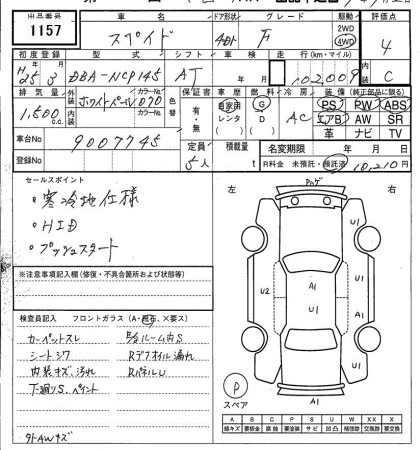 出品番号 車名 ドア形状 グレード 駆動 評価点
1157 スペイド 4Dr F 2WD 4WD 4
初度登録 型式 シフト 車検 走行(km・マイル) 内装
H25 3 DBA-NCP145 AT 年 月 102009 C
排気量 外装 カラーNo. 色替 カラーNo. 保証書 車歴 燃料 冷房 装備(純正部品に限る)
1,500 c.c. ホワイトパール070 有・無 自家用 レンタ G D AC PS PW ABS
エアB AW SR
革 ナビ TV
車台No 9007745 定員 積載量 名変期限 年 月 日
登録No 5人 t R料金 未預託・預託済 10,210円
セールスポイント
・寒冷地仕様
・HID
・プッシュスタート
※注意事項記入欄(修復・不具合箇所および状態等)
検査員記入 フロントガラス(A・飛石、×要ス)
カーペットスレ
シートコゲ
内装キズ、汚れ
下廻りS、ペイント
ルーム内S
Rデフオイル漏れ
RパネルU
外AWキズ
左 右
U1
U1
U2
A1
U1
A1
U1
A1
P
スペア
A B C P S U W X XX X
線キズ 要板金 腐蝕 要塗装 サビ 凹凸 補修跡 要交換 交換済 要交換